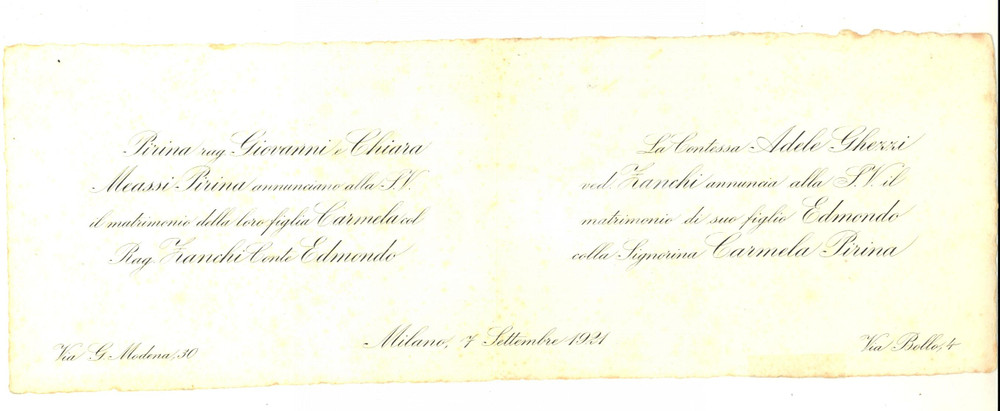 Pirina rag. Giovanni e Chiara
Meassi Pirina annunciano alla S.V.
il matrimonio della loro figlia Carmela col
Rag. Zanchi Conte Edmondo
Via G. Modena, 30
La Contessa Adele Ghezzi
ved. Zanchi annuncia alla S.V. il
matrimonio di suo figlio Edmondo
colla Signorina Carmela Pirina
Via Bollo, 4
Milano, 7 Settembre 1921